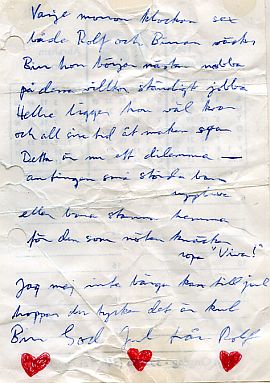 Varje morron klockan sex
båda Rolf och Binan väcks
Bin hon börjar nästan nobba
på dessa villkor ständigt jobba
Hellre ligger hon väl kvar
och all sin tid åt maken spar
Detta är nu ett dilemma —
antingen små stunder
eller bara stanna hemma
för den som nöten knäcker
ropa "Viva!"
Jag mej inte bärga kan till jul
hoppas du tycker det är kul
Bin God Jul från Rolf